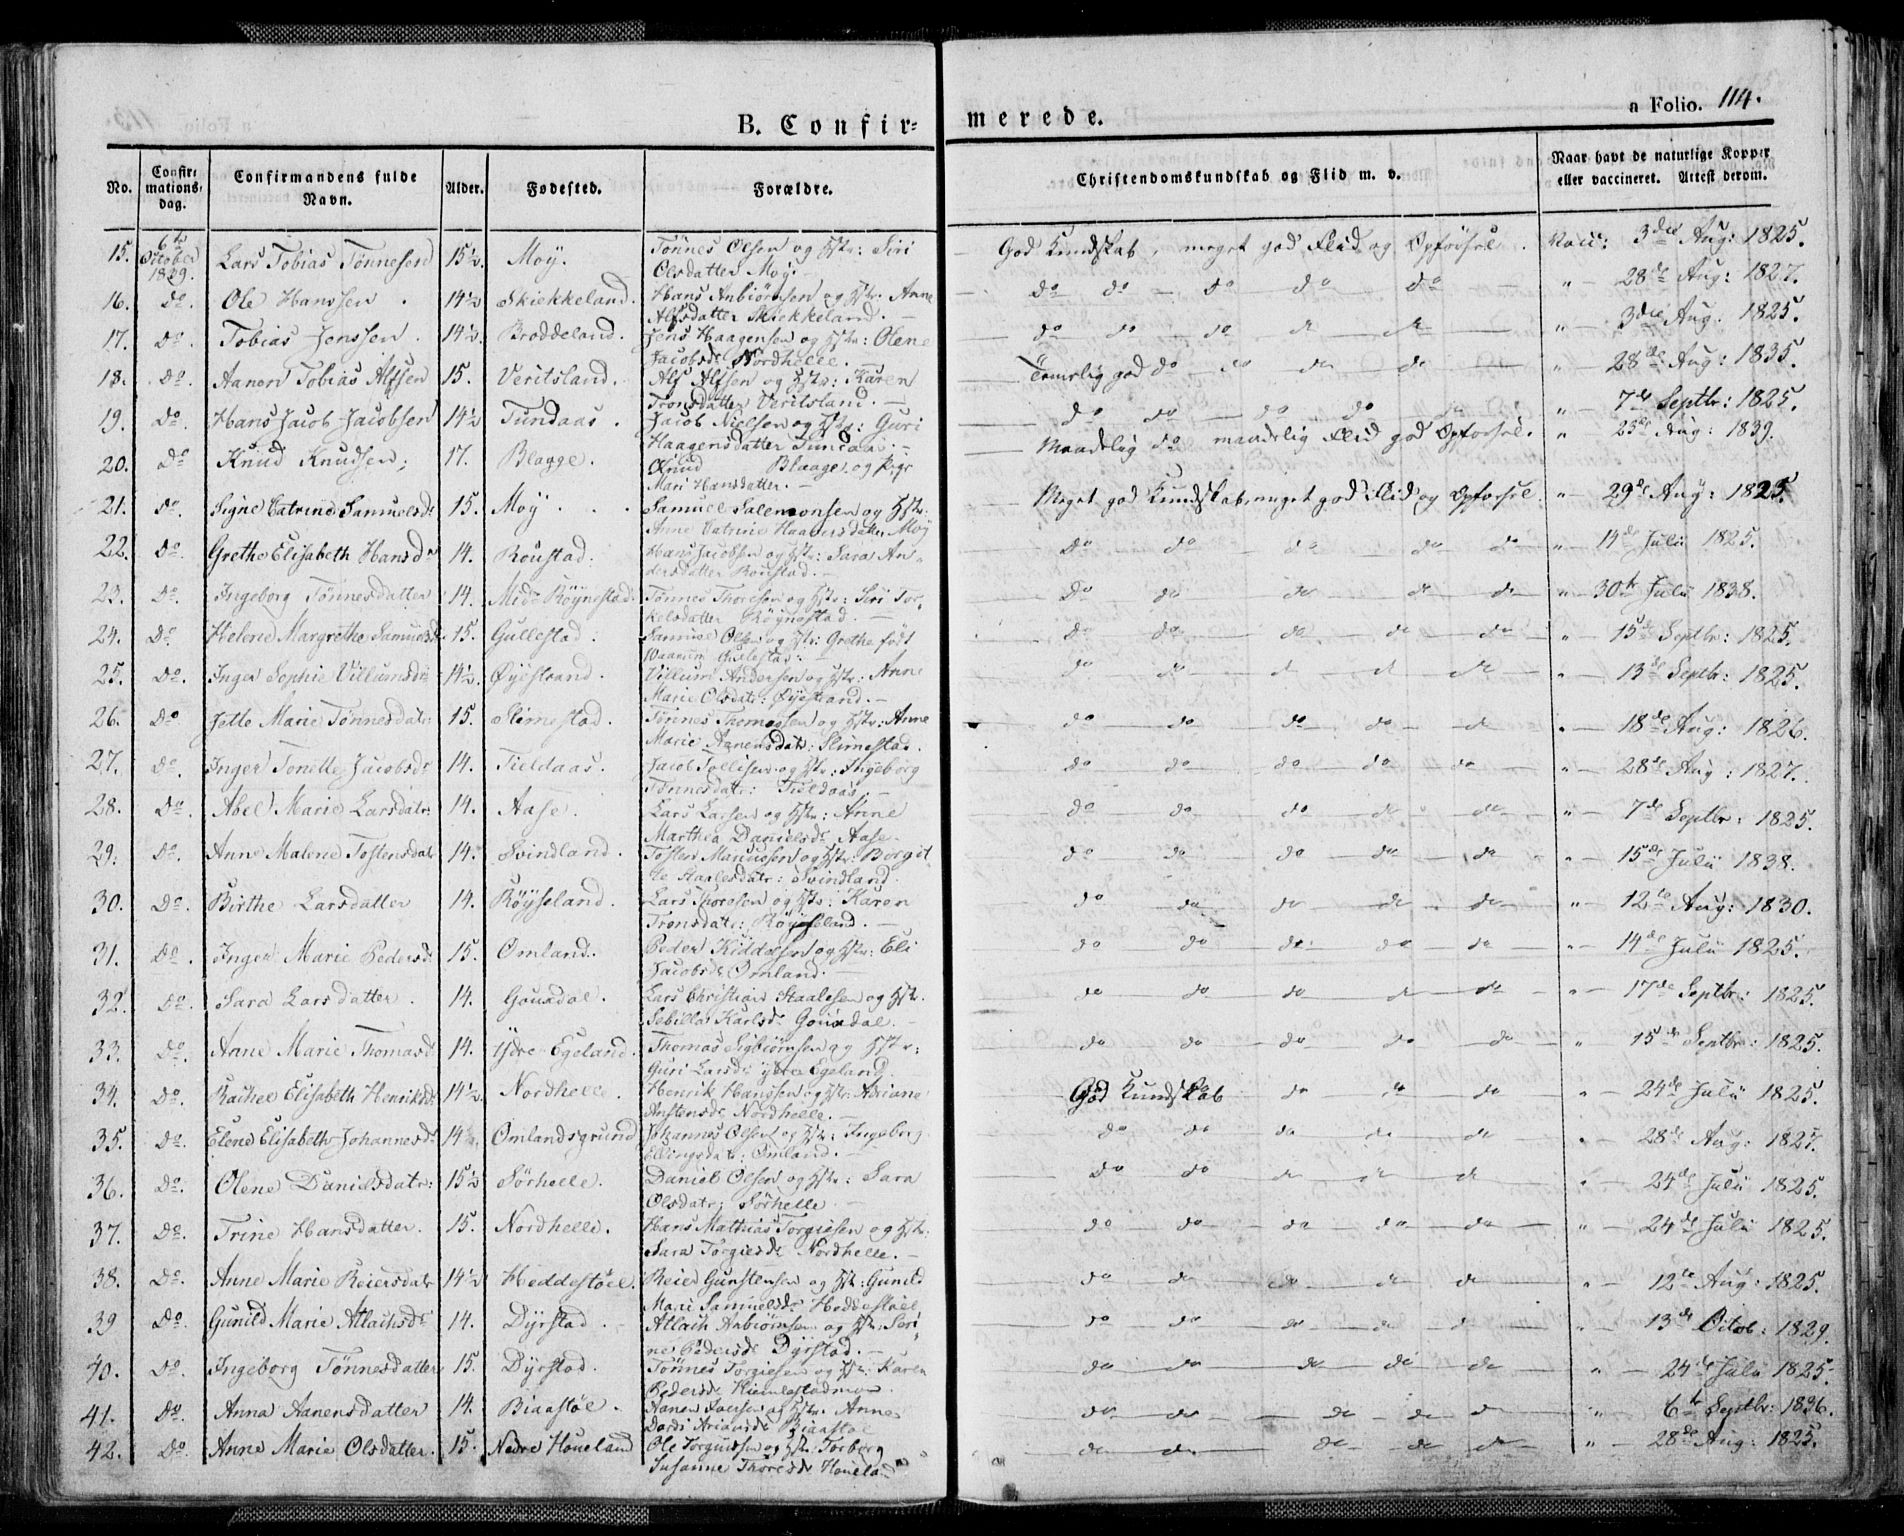 B. Confir=
merede.
a Folio. 114.
No.
Confir=
mations=
dag.
Confirmandens fulde
Navn.
Alder.
Fødested.
Forældre.
Christendomskundskab og Flid m. v.
Naar havt de naturlige Kopper
eller vaccineret. Attest derom.
15. 6te October 1839. Lars Tobias Tønnesen 15½. Moÿ. Tønnes Olsen og Hstr: Siri
Olsdatter Moÿ.
God Kundskab, meget god Flid og Opførsel. Vacc: 3die Aug: 1825.
16. Do. Ole Hanssen. 14½ Skiekkeland. Hans Anbiørnsen og Hstr. Anne
Alfsdatter Skiekkeland.
do do do do do " 28de Aug: 1827.
17. Do. Tobias Jenssen. 14½. Broddeland. Jens Haagensen og Hstr: Olene
Jacobsdr Nordhelle.
do do do do do " 3die Aug. 1825.
18. Do. Aanen Tobias Alfsen 15. Veritsland. Alf Alfsen og Hstr: Karen
Tronsdatter Veritsland.
Temelig god do do do do " 28de Aug: 1835.
19. Do. Hans Jacob Jacobsen 14½ Tundaas. Jacob Nielsen og Hstr: Guri
Haagensdatter Tundaas.
do do do do do " 7de Septbr: 1825.
20. Do Knud Knudsen; 17. Blagge. Knud Blaage og Pige
Mari Hansdatter.
Maadelig do maadelig Flid god Opførsel. " 23de Aug: 1839.
21. do. Signe Catrine Samuelsdr 15. Moÿ. Samuel Salemonsen og Hstr:
Anne Catrine Haagensdatter Moÿ
Meget god Kundskab, meget god Flid og Opførsel. " 29de Aug: 1825.
22. do. Grethe Elisabeth Hansdr 14. Røustad. Hans Jacobsen og Hstr: Sara An-
dersdatter Roustad.
do do do do do " 14de Julii 1825.
23. Do. Ingeborg Tønnesdatter 14. Mids Røÿnestad. Tønnes Thoresen og Hstr: Siri Tor-
kelsdatter Røÿnestad.
do do do do do " 30te Julii 1838.
24. Do. Helene Margrethe Samuelsdr. 15. Gullestad. Samuel Olsen og Hstr: Grethe født
Waarum Gullestad.
do do do do do " 15de Septbr: 1825.
25. Do. Inger Sophie Villumsdr 14½. Øÿestrand. Villum Andersen og Hstr: Anne
Marie Olsdatr: Øÿestrand.
do do do do do " 13de Septbr: 1825.
26. Do Jette Marie Tønnesdatr: 15. Slimestad. Tønnes Thomassen og Hstr: Anne
Marie Aanensdatr: Slimestad.
do do do do do " 18de Aug: 1826.
27. Do. Inger Tonette Jacobsdr 14. Tieldaas. Jacob Tollisen og Hstr: Ingeborg
Tønnesdatr: Tieldaas.
do do do do do " 28de Aug: 1827.
28. Do. Abel Marie Larsdatr: 14. Aase. Lars Larsen og Hstr: Anne
Marthea Danielsdr Aase.
do do do do do " 7de Septbr: 1825.
29. Do. Anne Malene Tostensdatr 14. Svindland. Tosten Mariussen og Hstr: Borgit
te Staalesdatr: Svindland.
do do do do do " 15de Julii 1838.
30. Do. Birthe Larsdatter 14. Røÿseland. Lars Thoresen og Hstr: Karen
Tronsdatr: Røÿseland.
do do do do do " 12te Aug: 1830.
31. Do. Inger Marie Pedersd. 15. Omland. Peder Kiddelsen og Hstr: Eli
Jacobsdr Omland.
do do do do do " 14de Julii 1825.
32. Do. Sara Larsdatter. 14. Gouadal. Lars Christian Staalesen og Hstr.
Sebilla Karlsdr Gouadal.
do do do do do " 17de Septbr: 1825.
33. Do. Anne Marie Thomasd 14. Ÿdre Egeland. Thomas Sigbiørnsen og Hstr:
Guri Larsdr ÿdre Egeland.
do do do do do " 15de Septbr: 1825.
34. Do. Rachel Elisabeth Henriksdr 14½. Nordhelle. Henrik Hanssen og Hstr: Adriane
Anstensdr Nordhelle.
God Kundskab do do do " 24de Julii 1825.
35. Do. Elene Elisabeth Johannesdr 14½. Omlandsgrund Johannes Olsen og Hstr: Ingeborg
Ellingsdatr: Omland.
do do do do do " 28de Aug: 1827.
36. Do. Olene Danielsdatr: 15½ Sørhelle. Daniel Olsen og Hstr: Sara
Olsdatr: Sørhelle
do do do do do " 24de Julii 1825.
37. Do. Trine Hansdatter. 15. Nordhelle. Hans Mathias Torgiesen og Hstr.
Sara Torgiesdr Nordhelle.
do do do do do " 24de Julii 1825.
38. Do. Anne Marie Reiersdatr 14½ Heddestøel. Reier Gunstensen og Hstr: Gunild
Mari Samuelsdr Heddestøel
do do do do do " 12te Aug: 1825.
39 Do. Gunild Marie Atlachsdr 14. Dÿrstad. Atlach Anbiørnsen og Hstr: Seri-
ne Pedersdr Dÿrstad.
do do do do do " 13de Octob: 1829.
40. Do. Ingeborg Tønnesdatter 15. Dÿrstad. Tørnes Torgiesen og Hstr: Karen
Pedersdr
do do do do do " 24de Julii 1825.
41. Do. Anna Aanensdatter 14. Biaastøl. Aanen Iversen og Hstr. Anne
Biaastøl
do do do do do " 6te Septbr: 1836.
42. Do Anne Marie Olsdatter. 15. Nedre Houeland Ole Torgiussen og Hstr Torborg
Susanne Thoresdr Houeland
do do do do do " 28de Aug: 1825.